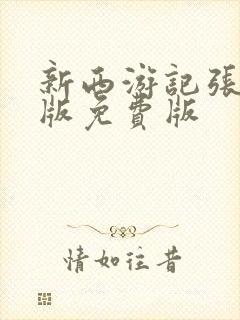 新西游記張
版免費版
情如往昔